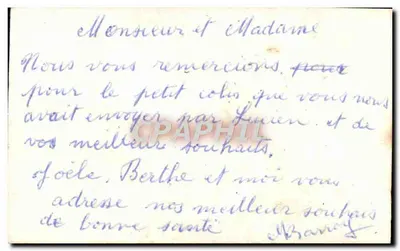 Monsieur et Madame
Nous vous remercions
pour le petit colis que vous nous
avait envoyer par Lucien et de
vos meilleure souhaits.
Joële, Berthe et moi vous
adresse nos meilleur souhais
de bonne santé
CPAPHIL